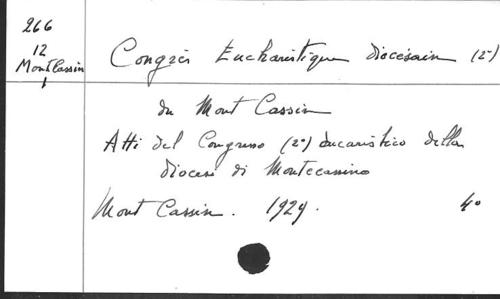 266
12
Mont Cassin
1
Congrès Eucharistique diocésain (2º)
du Mont Cassin
Atti del Congresso (2º) eucaristico della
diocesi di Montecassino
Mont Cassin. 1929. 4º